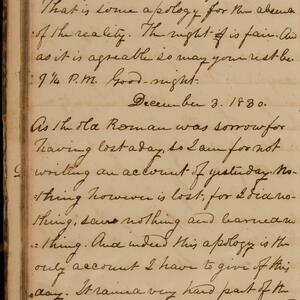 That is some apology for the absence
of the reality. The night is fair. And
as it is agreeable so may your rest be.
9¼ P.M. Good-night.
December 3. 1830.
As the old Roman was sorrow for
having lost a day, so I am for not
writing an account of yesterday. No-
thing however is lost, for I did no-
thing, saw nothing and learned no
thing. And indeed this apology is the
only account I have to give of this
day. It rained very hard part of the